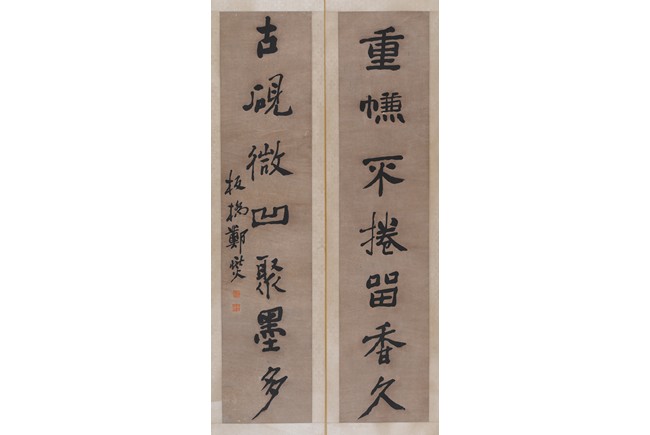 重㡘不捲留香久
古硯微凹聚墨多
板橋鄭燮